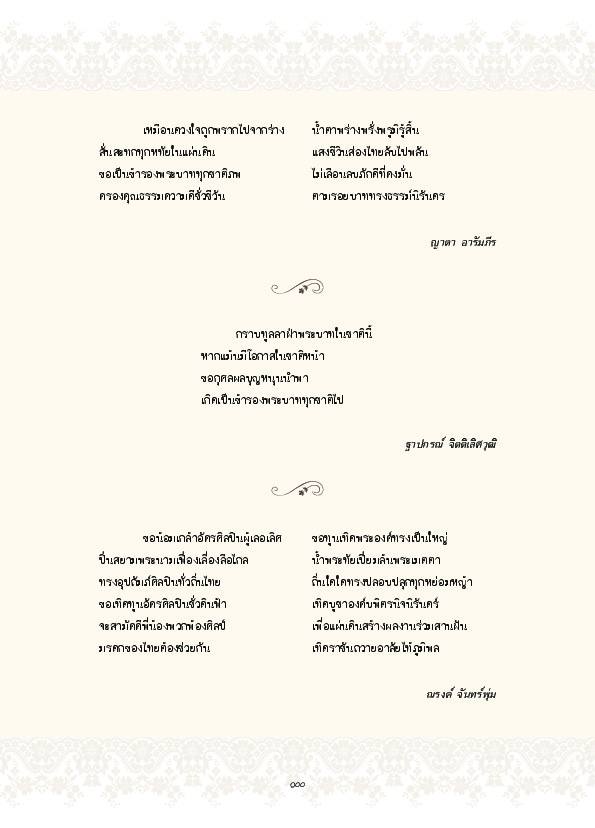 เหมือนดวงใจถูกพรากไปจากร่าง น้ำตาพร่างพรั่งพรูมิรู้สิ้น
สั่นสะทกทุกหทัยในแผ่นดิน แสงชีวินส่องไทยลับไปพลัน
ขอเป็นข้ารองพระบาททุกชาติภพ ไม่เลือนลบภักดีที่คงมั่น
ครองคุณธรรมความดีชั่วชีวัน ตามรอยบาททรงธรรม์นิรันดร
ญาดา อารัมภีร
กราบทูลลาฝ่าพระบาทในชาตินี้
หากแม้นมีโอกาสในชาติหน้า
ขอกุศลผลบุญหนุนนำพา
เกิดเป็นข้ารองพระบาททุกชาติไป
ฐาปกรณ์ จิตติเลิศวุฒิ
ขอน้อมเกล้าอัครศิลปินผู้เลอเลิศ ขอทูนเทิดพระองค์ทรงเป็นใหญ่
ปิ่นสยามพระนามเฟื่องเลื่องลือไกล น้ำพระทัยเปี่ยมล้นพระเมตตา
ทรงอุปถัมภ์ศิลปินทั่วถิ่นไทย ถิ่นใดใดทรงปลอบปลุกทุกหย่อมหญ้า
ขอเทิดทูนอัครศิลปินชั่วดินฟ้า เทิดบูชาองค์นพิตรนิจนิรันดร์
จะสามัคคีพี่น้องพวกพ้องศิลป์ เพื่อแผ่นดินสร้างผลงานร่วมสานฝัน
มรดกของไทยต้องช่วยกัน เทิดราชันถวายอาลัยไท้ภูมิพล
ณรงค์ จันทร์พุ่ม
๑๐๐